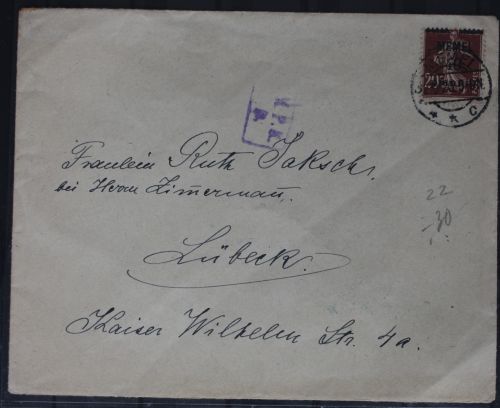 MEMEL
* * c
Fräulein Ruth Jaksch.
bei Herrn Zimmerman.
22
30
Lübeck.
Kaiser Wilhelm Str. 4a.